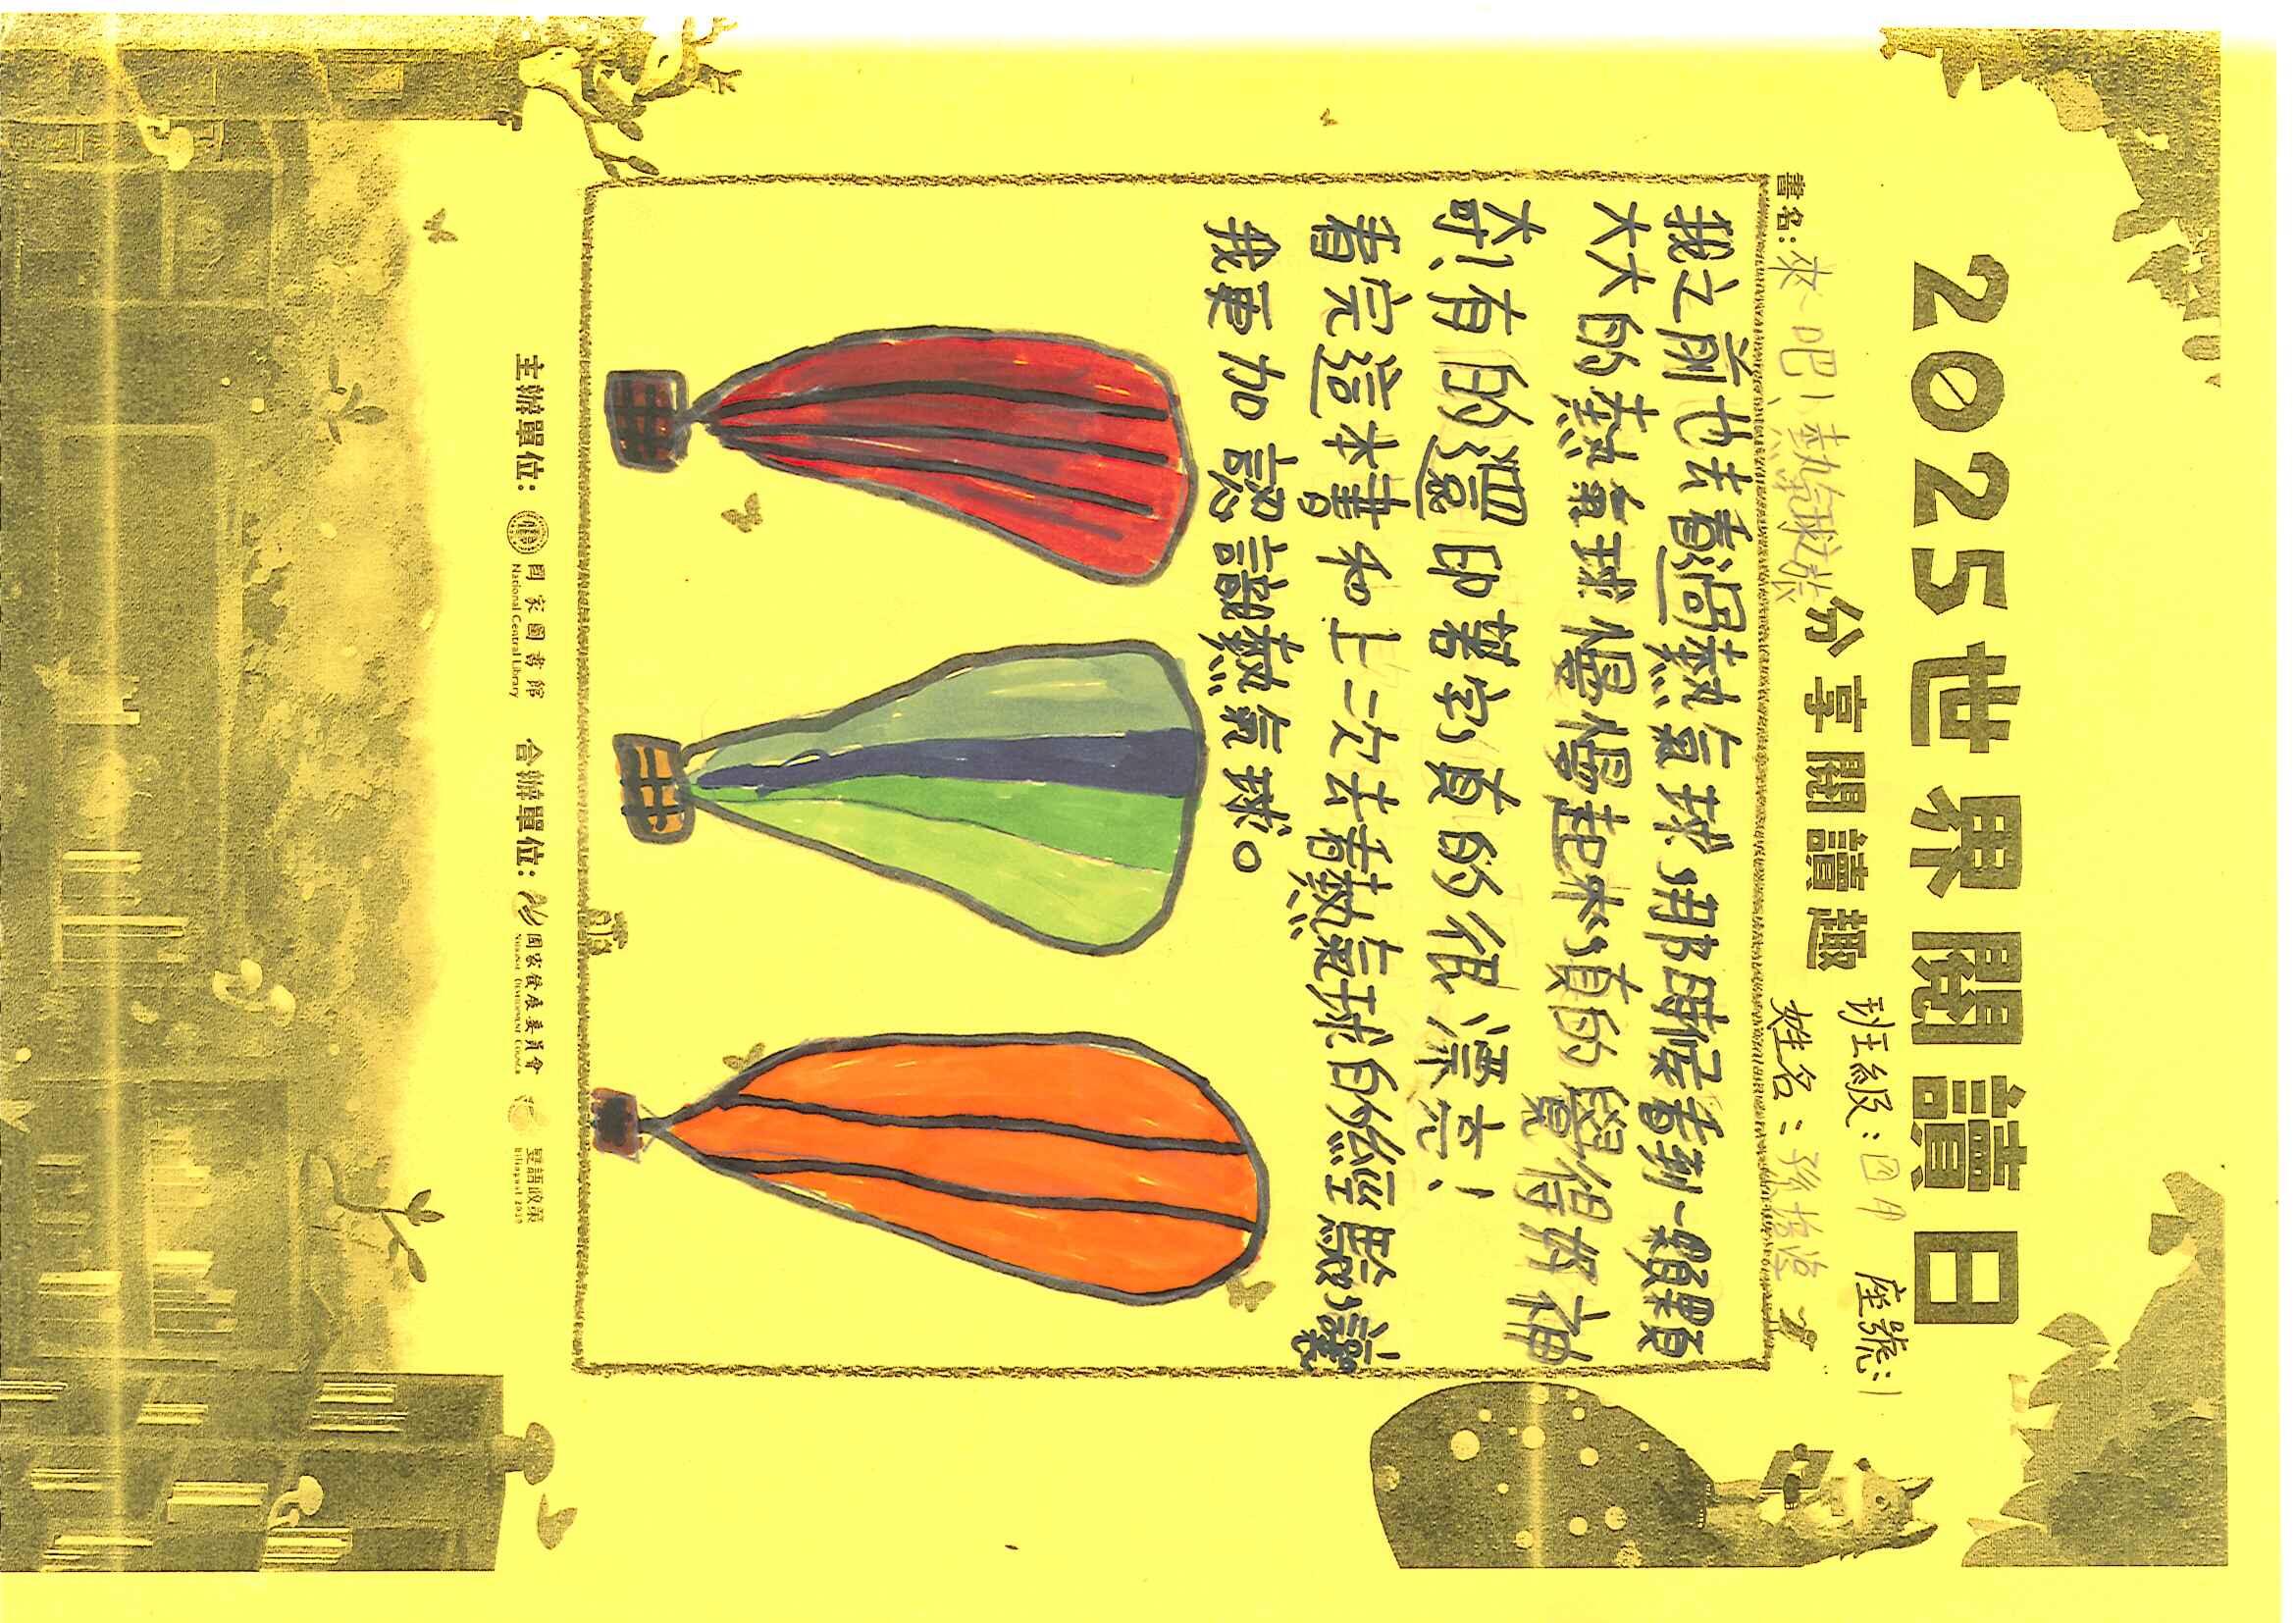 2025世界閱讀日
分享閱讀趣
班級:四月 座號:1
書名:來吧!熱氣球
姓名:孫
我之前也去看過熱氣球,那時候看到一顆顆
大大的熱氣球慢慢起來,真的覺得好神
奇!有的還印著字,真的很漂亮!
看完這本書和上一次去看熱氣球的經驗,讓
我更加認識熱氣球。
主辦單位: 國家圖書館 合辦單位: 國家發展委員會 雙語政策
National Central Library National Development Council Bilingual 2030